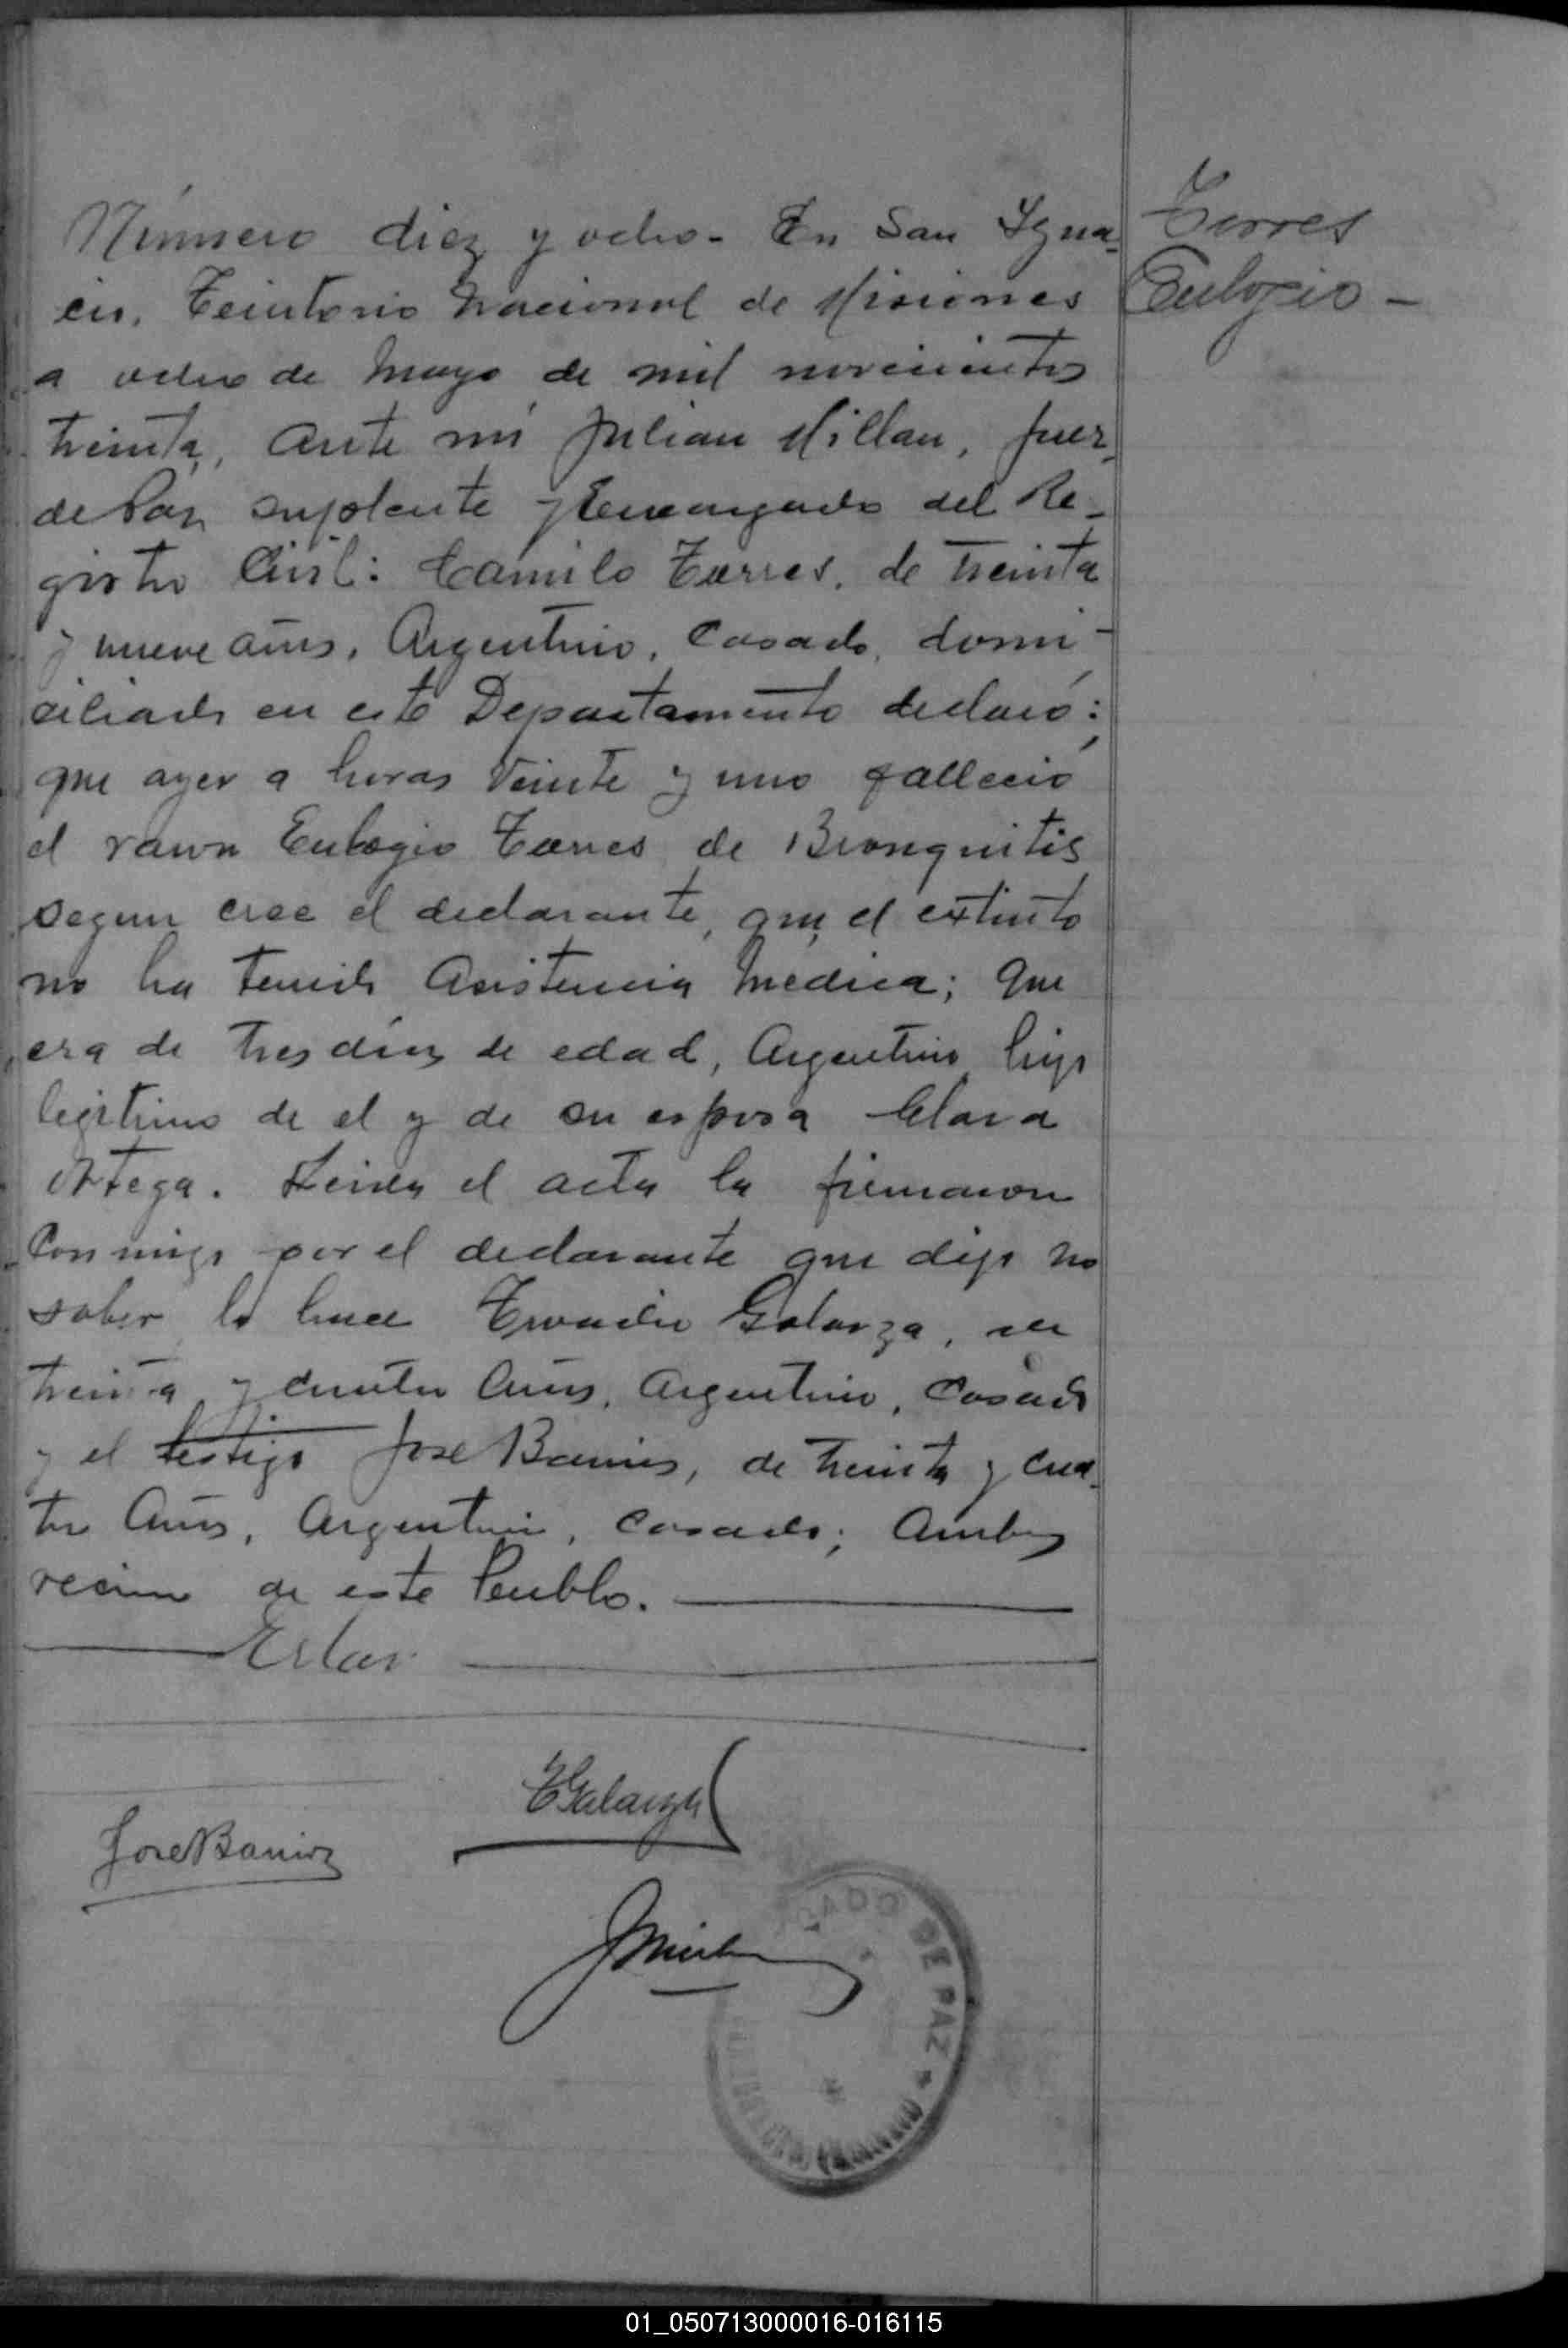 Número diez y ocho - En San Igna-
cio, Territorio Nacional de Misiones
a ocho de Mayo de mil novecientos
treinta, ante mi Julian Millan, Juez
de Paz suplente y Encargado del Re-
gistro Civil: Camilo Torres, de treinta
y nueve años, Argentino, Casado, domi-
ciliado en este Departamento declaró:
que ayer a horas veinte y uno falleció
el varon Eulogio Torres de Bronquitis
segun cree el declarante, que el extinto
no ha tenido Asistencia Médica; que
era de tres dias de edad, Argentino hijo
legitimo de el y de su esposa Clara
Ortega. Leida el acta la firmaron
Conmigo por el declarante que dijo no
saber lo hace Galarza, de
treinta y cuatro años, Argentino, Casado
y el testigo Jose Barrios, de treinta y cua-
tro años, Argentino, casado; Ambos
vecinos de este Pueblo.
Torres
Eulogio -
TGalarza
Jose Barrios
JMillan
JUZGADO DE PAZ
01_050713000016-016115